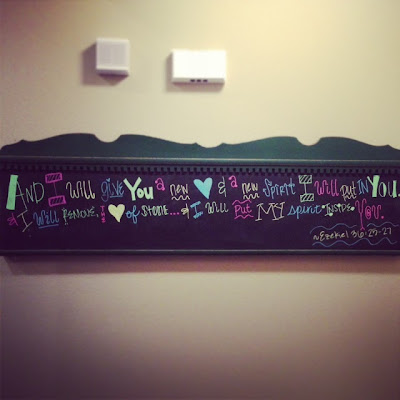 AND I Will give You a new ♥ & a new Spirit I Will put IN YOU.
& I Will REMOVE THE ♥ of STONE... & I Will Put MY spirit INSIDE You.
~Ezekiel 36:25-27